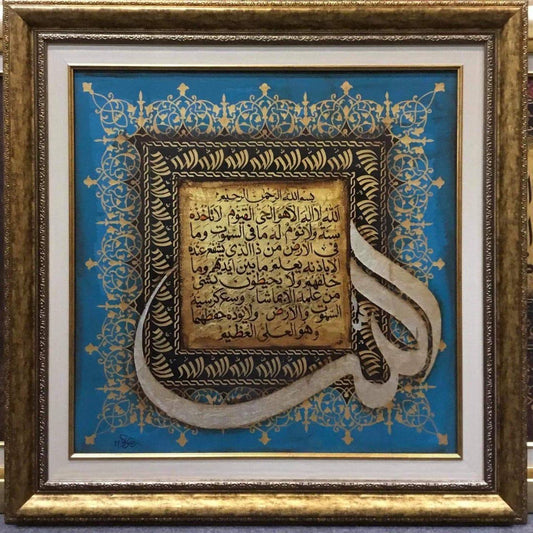 الله الله الله الله الله الله الله
بسم الله الرحمن الرحيم
الله لا اله الا هو الحي القيوم لا تاخذه
سنة ولا نوم له ما في السموت وما
في الارض من ذا الذي يشفع عنده
الا باذنه يعلم ما بين ايديهم وما
خلفهم ولا يحيطون بشئ
من علمه الا بما شاء وسع كرسيه
السموت والارض ولا يوده حفظهما
وهو العلي العظيم
الله